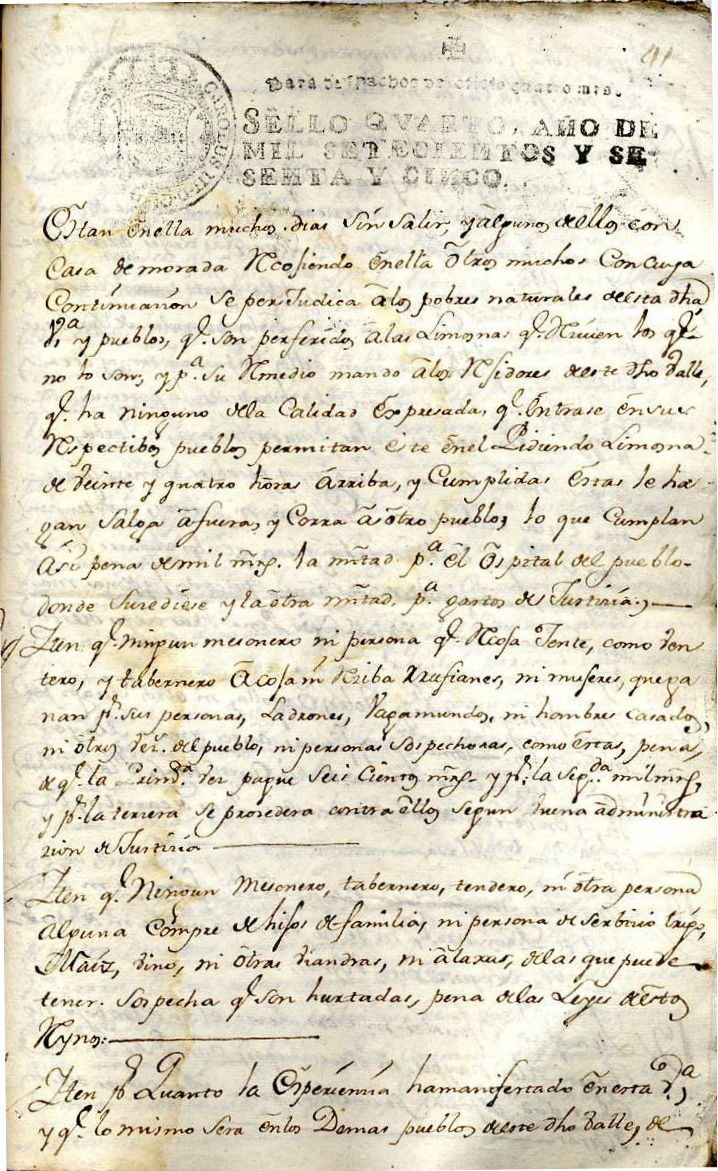 41
Para despachos de oficio quatro mrs.
SELLO QVARTO, AÑO DE
MIL SETECIENTOS Y SE
SENTA Y CINCO.
CAROLUS III
Estan en ella muchos dias sin salir, y algunos de ellos con
Casa de morada Rcojiendo en ella otros muchos Con cuya
Continuacion se perjudica a los pobres naturales de esta dha
Va y pueblos, q.e son perferidos a las Limosnas q.e Riven los q.e
no lo son; y p.a su Rmedio mando a los Rjidores de este dho Valle,
q.e ha ninguno de la Calidad Expresada, q.e Entrase en sus
Rspectibos pueblos permitan este en el Pidiendo Limosna
de veinte y quatro horas Arriba, y Cumplidas Estas le ha
gan Salga a fuera, y Corra a otro pueblo, lo que Cumplan
Asi pena de mil mrs. la mitad p.a el Ospital del pueblo
donde Surediese y la otra mitad p.a gastos de Justicia.
Iten q.e ningun mesonero ni persona q.e Rcoja Jente, como ven
tero, y tabernero Acoja ni Rciba Rrufianes, ni mujeres, que ga
nan p.r sus personas, Ladrones, Vagamundos, ni hombres Casados,
ni otros del pueblo, ni personas Sospechosas, como Estas, pena,
de q.e la vez pague Seis Cientos mrs. y p.r la seg.da mil mrs,
y p.r la tercera se procedera contra Ellos segun buena administra
cion de Justicia
Iten q.e Ningun Mesonero, tabernero, tendero, ni otra persona
alguna Compre de hijos de familia, ni persona de serbicio trigo,
Maiz, vino, ni otras viandras, ni alaxas, de las que puede
tener Sospecha q.e son hurtadas, pena de las Leyes de Estos
Rynos:
Iten p.r Quanto la Esperiencia ha manifestado en esta V.a,
y q.e lo mismo sera en los Demas pueblos de este dho Valle, de